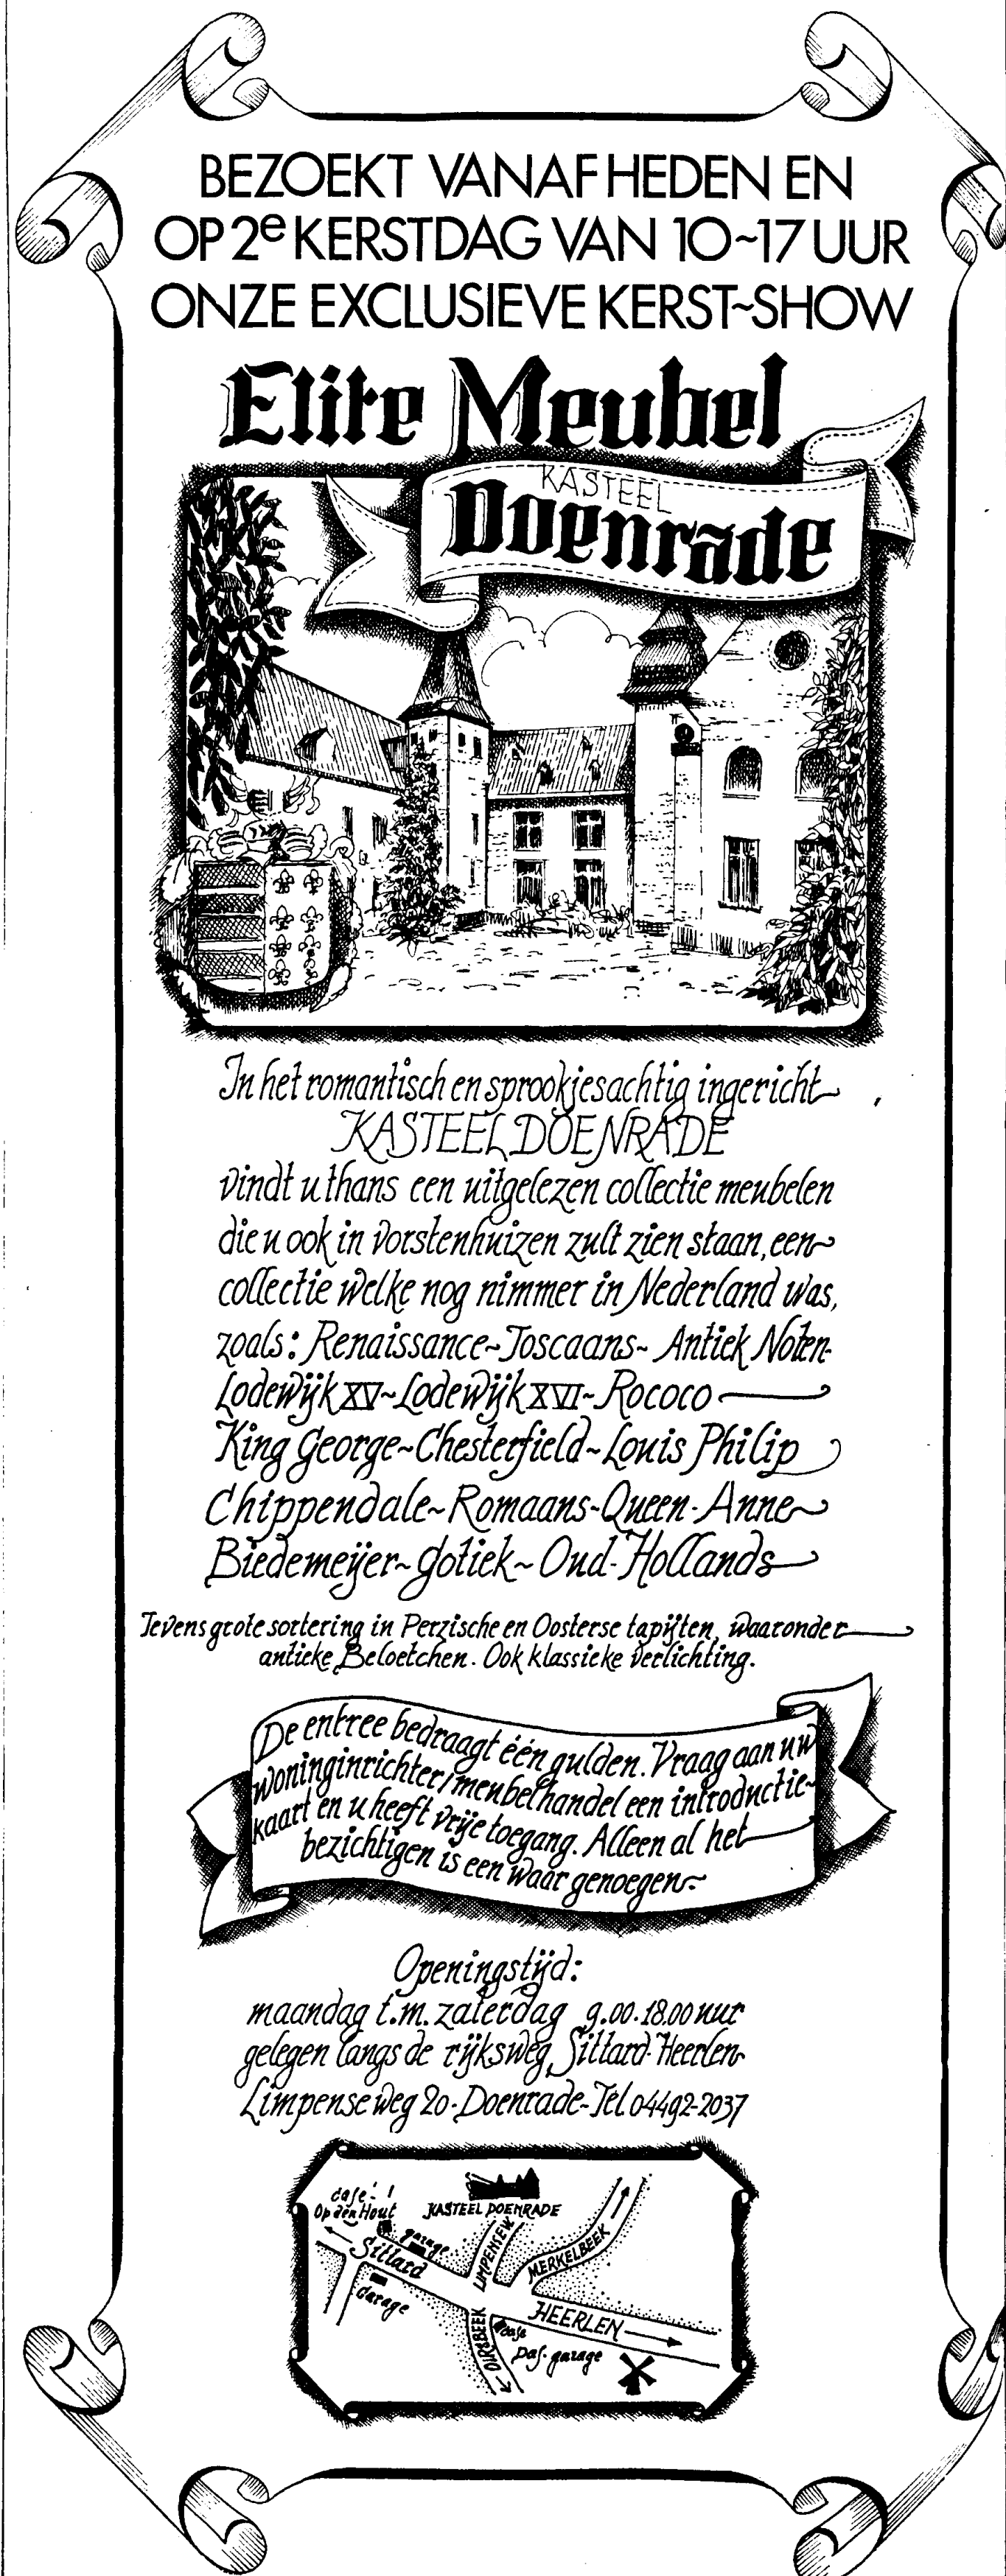 BEZOEKT VANAF HEDEN EN
OP 2e KERSTDAG VAN 10~17 UUR
ONZE EXCLUSIEVE KERST~SHOW
Elite Meubel
KASTEEL
Doenrade
In het romantisch en sprookjesachtig ingericht
KASTEEL DOENRADE
vindt u thans een uitgelezen collectie meubelen
die u ook in vorstenhuizen zult zien staan, een
collectie welke nog nimmer in Nederland was,
zoals: Renaissance~Toscaans~ Antiek Noten-
Lodewijk XV~Lodewijk XVI~ Rococo
King George~Chesterfield~Louis Philip
Chippendale~Romaans-Queen-Anne
Biedemeijer~gotiek~ Oud-Hollands
Tevens grote sortering in Perzische en Oosterse tapijten, waaronder
antieke Beloetchen. Ook klassieke verlichting.
De entree bedraagt één gulden. Vraag aan uw
woninginrichter/meubelhandel een introductie-
kaart en u heeft vrije toegang. Alleen al het
bezichtigen is een waar genoegen
Openingstijd:
maandag t.m. zaterdag 9.00-18.00 uur
gelegen langs de rijksweg Sittard-Heerlen
Limpenseweg 20-Doenrade-Tel 04492-2037
café
Op den Hout
KASTEEL DOENRADE
garage
Sittard
garage
LIMPENSEW.
MERKELBEEK
HEERLEN
OIRSBEEK
café
Daf-garage